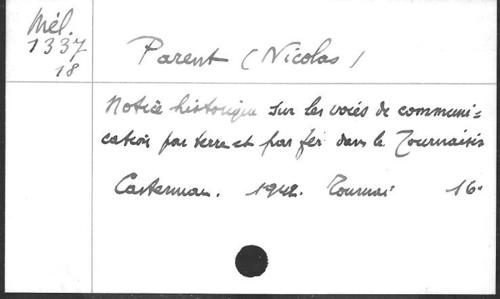 Mél.
1337
18
Parent (Nicolas)
Notice historique sur les voies de communi=
cation par terre et par fer dans le Tournaisis
Casterman. 1942. Tournai 16°